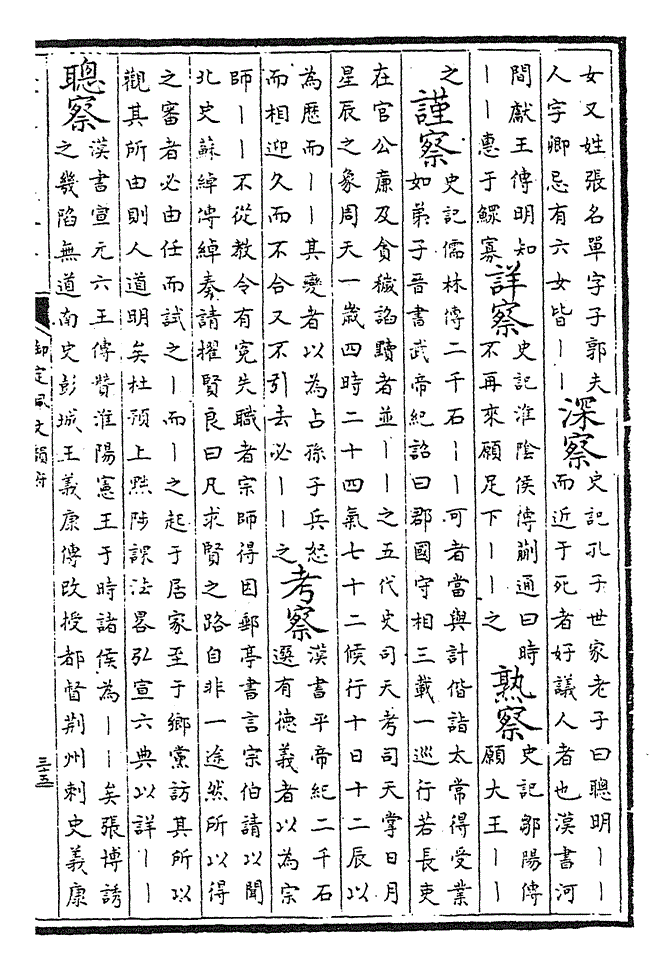 女又姓張名單字子郭夫
人字卿忌有六女皆丨丨
深察
史記孔子世家老子曰聰明丨丨
而近于死者好議人者也漢書河
間獻王傳明知
丨丨惠于鰥寡
詳察
史記淮陰侯傳蒯通曰時
不再來願足下丨丨之
熟察
史記鄒陽傳
願大王丨丨
之
謹察
史記儒林傳二千石丨丨可者當與計偕詣太常得受業
如弟子晉書武帝紀詔曰郡國守相三載一巡行若長吏
在官公廉及貪穢諂黷者並丨丨之五代史司天考司天掌日月
星辰之象周天一歲四時二十四氣七十二候行十日十二辰以
為歷而丨丨其變者以為占孫子兵怒
而相迎久而不合又不引去必丨丨之
考察
漢書平帝紀二千石
選有德義者以為宗
師丨丨不從教令有冤失職者宗師得因郵亭書言宗伯請以聞
北史蘇綽傳綽奏請擢賢良曰凡求賢之路自非一途然所以得
之審者必由任而試之丨而丨之起于居家至于鄉黨訪其所以
觀其所由則人道明矣杜預上黜陟課法畧弘宣六典以詳丨丨
聰察
漢書宣元六王傳贊淮陽憲王于時諸侯為丨丨矣張博誘
之幾陷無道南史彭城王義康傳改授都督荆州刺史義康
御定佩文韻府
三十五